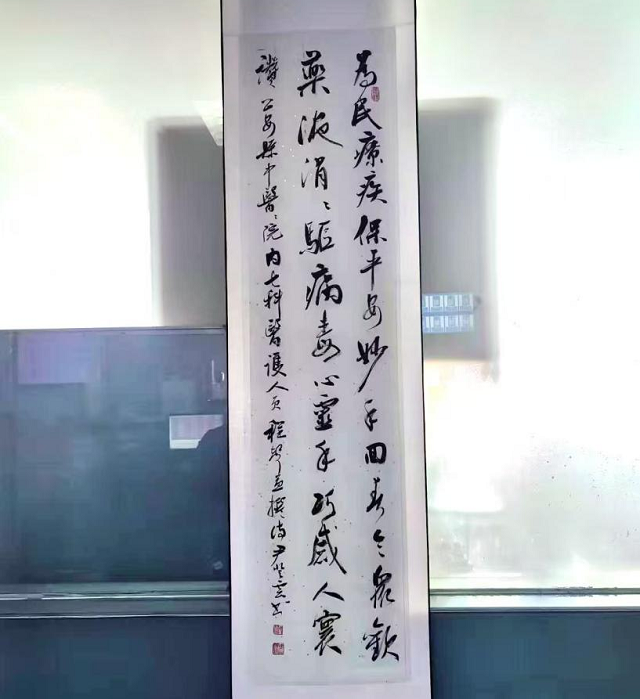 為民療疾保平安妙手回春令眾歡
藥液涓〻驅病毒心靈手巧感人寰
讚公安縣中醫〻院內七科醫護人員程撰詩尹書